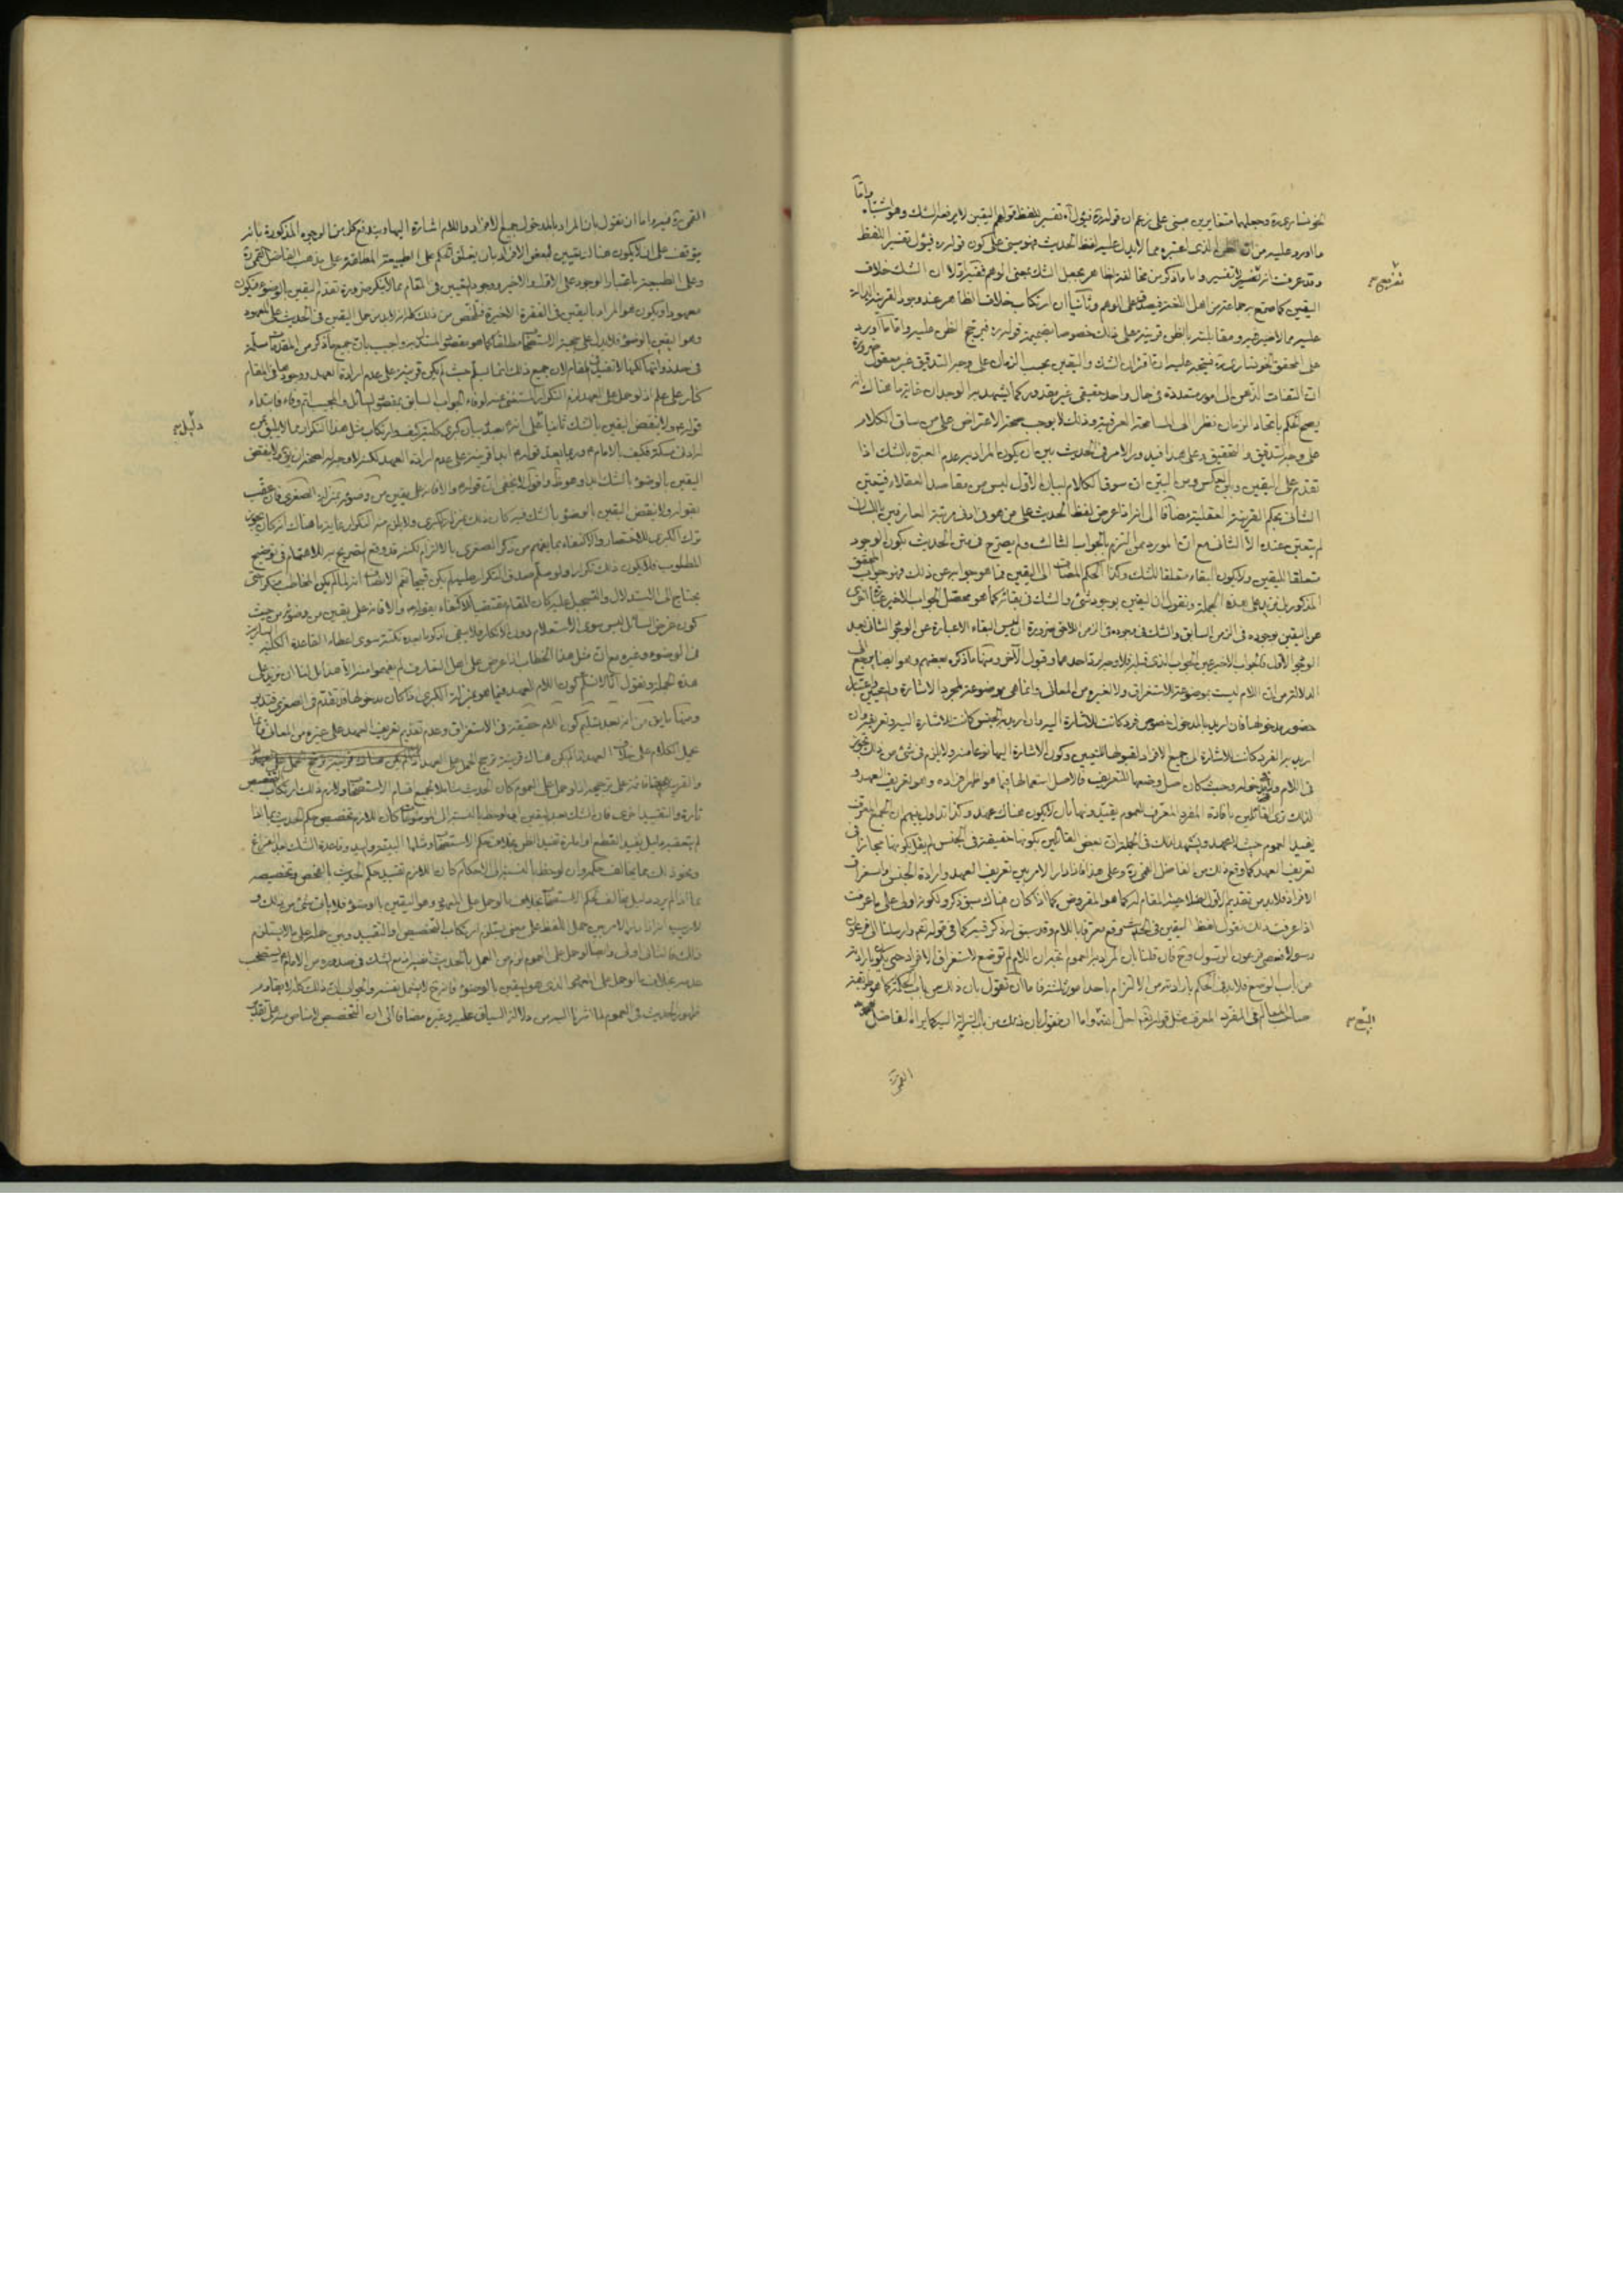 الخونساري ره وجعلهما متغايرين مبنى على زعم ان قوله ره فيؤل آه تفسير للفظ قولهم اليقين لا يرفعه الشك وهو اشتباه
واما
ما اورد عليه من ان الذى اعتبره مما لا يدل عليه لفظ الحديث فهو مبنى على كون قوله ره فيؤل تفسير اللفظ
وقد عرفت انه تفسير واما ما ذكره من مخالفة الظاهر بجعل الشك بمعنى الوهم ففيه اولا ان الشك خلاف
اليقين كما صرح به جماعة من اهل اللغة فيصدق على الوهم وثانيا ان ارتكاب خلاف الظاهر عند وجود القرينة الدالة
عليه مما لا ضير فيه ومقابلته بالظن قرينة على ذلك خصوصا بضميمة قوله ره فيرجح الظن عليه واما ما اورد
على المحقق الخونساري ره فيتجه عليه ان اقتران الشك واليقين بحسب الزمان على وجه التدقيق غير معقول ضرورة
ان التفات الذهن الى امور متعددة فى حال واحد حقيقى غير مقدور كما يشهد به الوجدان غاية ما هناك انه
يصح الحكم باتحاد الزمان نظرا الى المسامحة العرفية وذلك لا يوجب صحة الاعتراض على من ساق الكلام
على وجه التدقيق والتحقيق وعلى هذا فيدور الامر فى الحديث بين ان يكون المراد به عدم العبرة بالشك اذا
تقدم على اليقين وبين العكس ومن البين ان سوق الكلام لبيان الاول ليس من مقاصد العقلاء فيتعين
الثانى بحكم القرينة العقلية مضافا الى انه اذا عرض لفظ الحديث على من هو فى ادنى مرتبة العارفين باللسان
لم يتعين عنده الا الثانى مع ان المورد ممن التزم بالجواب الثالث ولم يصرح فى متن الحديث بكون الوجود
متعلقا لليقين ولا يكون البقاء متعلقا للشك وكذا الحكم المضاف الى اليقين فما هو جوابه عن ذلك فهو جواب المحقق
المذكور بل نزيد على هذه الجملة ونقول ان اليقين بوجود شئ والشك فى بقائه كما هو محصل الجواب الاخير عبارة اخرى
عن اليقين بوجوده فى الزمن السابق والشك فى وجوده فى الزمن اللاحق ضرورة ان ليس البقاء الا عبارة عن الوجود الثانى بعد
الوجود الاول فالجواب الاخير عين الجواب الذى قبله فلا وجه لرد احدهما وقبول الآخر ومنها ما ذكره بعضهم وهو ايضا يرجع الى
الدلالة من ان اللام ليست موضوعة للاستغراق ولا لغيره من المعانى وانما هى موضوعة لمجرد الاشارة والتعيين باعتبار
حضور مدخولها فان اريد بالمدخول خصوص فرد كانت للاشارة اليه وان اريد به الجنس كانت للاشارة اليه وتعريفه وان
اريد به الفرد كانت للاشارة الى جميع الافراد لقبولها للتعيين وكون الاشارة اليها نوعا منه ولا يلزم فى شئ من ذلك تجوز
فى اللام ولا فى مدخوله وحيث كان اصل وضعها للتعريف فالاصل استعمالها فيما هو اظهر افراده وهو تعريف العهد و
لذلك ترى القائلين بافادة المفرد المعرف للعموم يقيدونها بان لا يكون هناك عهد وكذا تداول بينهم ان الجمع المعرف
يفيد العموم حيث لا عهد ويشهد لذلك فى الجملة ان بعض القائلين بكونها حقيقة فى الجنس لم يقل بكونها مجازا فى
تعريف العهد كما وقع ذلك من الفاضل القمى ره وعلى هذا فاذا دار الامر بين تعريف العهد وارادة الجنس واستغراق
الافراد فلابد من تقديم الاول لصلاحية المقام له كما هو المفروض كما اذا كان هناك سبق ذكر ولكونه اولى على ما عرفت
اذا عرفت ذلك نقول لفظ اليقين فى الحديث وقع معرفا باللام وقد سبق له ذكر فيه كما فى قوله تعالى وارسلنا الى فرعون
رسولا فعصى فرعون الرسول وح فان قلنا بان المراد به العموم نختار ان اللام لم توضع لاستغراق الافراد حتى يكون ارادته
من باب الوضع فلابد فى الحكم بارادته من الالتزام باحد امور ثلثة فاما ان نقول بان ذلك من باب الحكمة كما هو طريقة
صاحب المعالم فى المفرد المعرف مثل قوله تعالى احل الله واما ان نقول بان ذلك من باب السراية اليه كما يراه الفاضل
القمى ره
القمى ره وغيره واما ان نقول بان المراد بالمدخول جميع الافراد واللام اشارة اليها ويندفع كل من الوجوه المذكورة بانه
يتوقف على ان لا يكون هنا تعيين لبعض الافراد بان يعلق الحكم على الطبيعة المطلقة على مذهب الفاضل القمى ره
وعلى الطبيعة باعتبار الوجود على الاول والاخير ووجود التعيين فى المقام مما لا ينكر ضرورة تقدم اليقين بالوضوء فيكون
معهودا ويكون هو المراد باليقين فى الفقرة الاخيرة فتلخص من ذلك كله انه لابد من حمل اليقين فى الحديث على المعهود
وهو اليقين بالوضوء فلا يدل على حجية الاستصحاب مطلقا كما هو مقصود المستدل به واجيب بان جميع ما ذكره من المقدمات مسلمة
فى حد ذواتها لكنها لا تفيد فى المقام لان جميع ذلك انما يسلم حيث لم يكن قرينة على عدم ارادة العهد ووجودها فى المقام
كنار على علم اذ لو حمل على العهد لزم التكرار المستغنى عنه لوفاء الجواب السابق بمقصود السائل والمجيب اتم وفاء فابتداء
قوله ولا ينقض اليقين بالشك ثانيا على انه بصدد بيان كبرى كلية كيف وارتكاب مثل هذا التكرار مما لا يليق بمن
له ادنى مسكة فكيف بالامام وربما يعد قوله ابدا قرينة على عدم ارادة العهد لكنه لا وجه له لصحة ان يقال ولا ينقض
اليقين بالوضوء بالشك ابدا وهو ظاهر واقول لا يخفى ان قوله والا فانه على يقين من وضوئه بمنزلة الصغرى فان عقب
بقوله ولا ينقض اليقين بالوضوء بالشك فيه كان ذلك بمنزلة الكبرى ولا يلزم منه التكرار غاية ما هناك انه كان يجوز
ترك الكبرى للاختصار والاكتفاء بما يفهم من ذكر الصغرى بالالتزام لكنه قد وقع التصريح به للاهتمام فى توضيح
المطلوب فلا يكون ذلك تكرارا ولو سلم صدق التكرار عليه لم يكن قبيحا نعم الانصاف انه لما لم يكن المخاطب منكرا حتى
يحتاج الى الاستدلال والتسجيل عليه كان المقام مقتضيا للاكتفاء بقوله والا فانه على يقين من وضوئه من حيث
كون غرض السائل ليس سوى الاستعلام دون الانكار فلا يبقى لذكر ما بعده نكتة سوى اعطاء القاعدة الكلية السارية
فى الوضوء وغيره مع ان مثل هذا الخطاب اذا عرض على اهل التعارف لم يفهموا منه الا هذا بل لنا ان نزيد على
هذه الجملة ونقول انا لا نسلم كون اللام للعهد فيما هو بمنزلة الكبرى اذا كان مدخولها قد تقدم فى الصغرى فتدبر
ومنها ما يق من انه بعد تسليم كون اللام حقيقة فى الاستغراق وعدم تقديم تعريف العهد على غيره من المعانى فانما
يحمل الكلام على خلاف العهد اذا لم يكن هناك قرينة ترجح الحمل على العهد
والقرينة هنا قائمة على ترجيحه اذ لو حمل على العموم كان الحديث شاملا لجميع اقسام الاستصحاب ولازم ذلك ارتكاب التخصيص
تارة والتقييد اخرى فان الشك بعد اليقين ان لوحظ بالنسبة الى الموضوعات كان اللازم تخصيص حكم الحديث بما اذا
لم يتعقبه دليل يفيد القطع او امارة تفيد الظن بخلاف حكم الاستصحاب وشملها البينة واليد وقاعدة الشك بعد الفراغ
ونحو ذلك مما يخالف حكمه وان لوحظ بالنسبة الى الاحكام كان اللازم تقييد حكم الحديث بالفحص وتخصيصه
بما اذا لم يرد دليل يخالف حكم الاستصحاب بخلاف ما لو حمل على المعهود وهو اليقين بالوضوء فلا يأتى شئ من ذلك و
لا ريب انه اذا دار الامر بين حمل اللفظ على معنى يستلزم ارتكاب التخصيص او التقييد وبين حمله على ما لا يستلزم
ذلك كان الثانى اولى وايضا لو حمل على العموم لزم من العمل بالحديث
عدمه بخلاف ما لو حمل على المعهود الذى هو اليقين بالوضوء فانه ح لا يشمل نفسه والجواب ان ذلك كله لا يقاوم
ظهور الحديث فى العموم لما اشرنا اليه من دلالة السياق عليه وغيره مضافا الى ان التخصيص